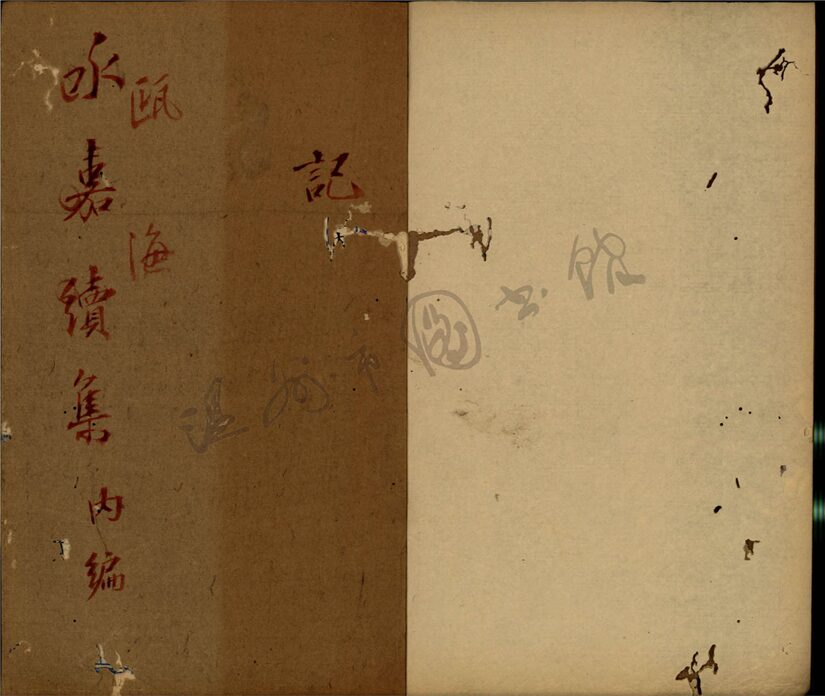 記
甌海
永嘉續集內編
温州市图书馆